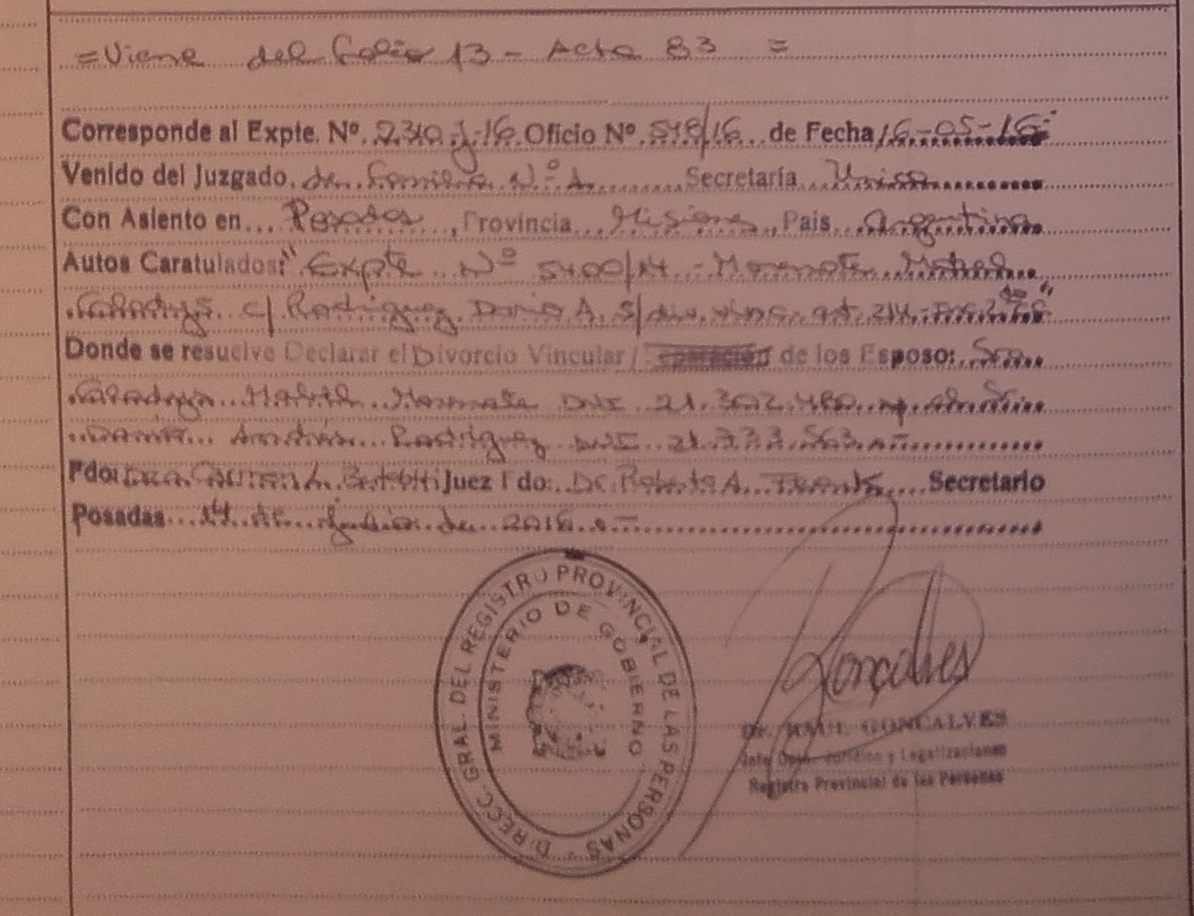 = Viene del folio 13 - Acta 83 =
Corresponde al Expte. Nº. 2310-J-16 Oficio Nº 518/16 de Fecha 16-05-16
Venido del Juzgado de Familia Nº 1 Secretaría Única
Con Asiento en Posadas, Provincia Misiones, País Argentina
Autos Caratulados: "Expte Nº 5400/14 - Mabel
Gladys c/ Rodriguez Dario A. S/ div. vinc. art. 214 inc 2
Donde se resuelve Declarar el Divorcio Vincular / de los Esposo: Sra.
Gladys DNI 21.302.480 y el Sr.
Rodriguez DNI 21.333.563.=
Fdo: Dra. Juez Fdo: Dr. Roberto A. Secretario
Posadas 14 de de 2016.=
DIRECC. GRAL. DEL REGISTRO PROVINCIAL DE LAS PERSONAS -
MINISTERIO DE GOBIERNO
Goncalves
Dr. RAUL GONCALVES
Jurídico y Legalizaciones
Registro Provincial de las Personas